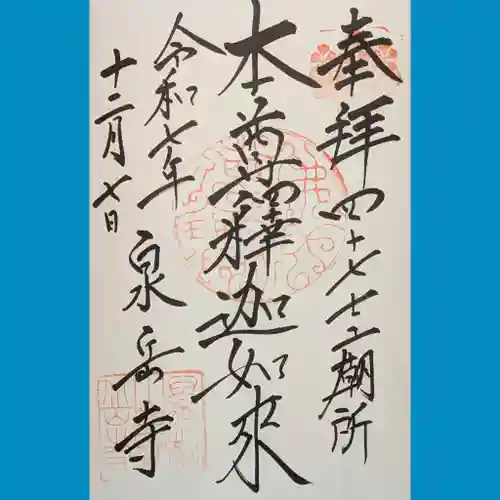 奉拝 四十七士廟所
本尊釋迦如來
令和七年
十二月七日
泉岳寺